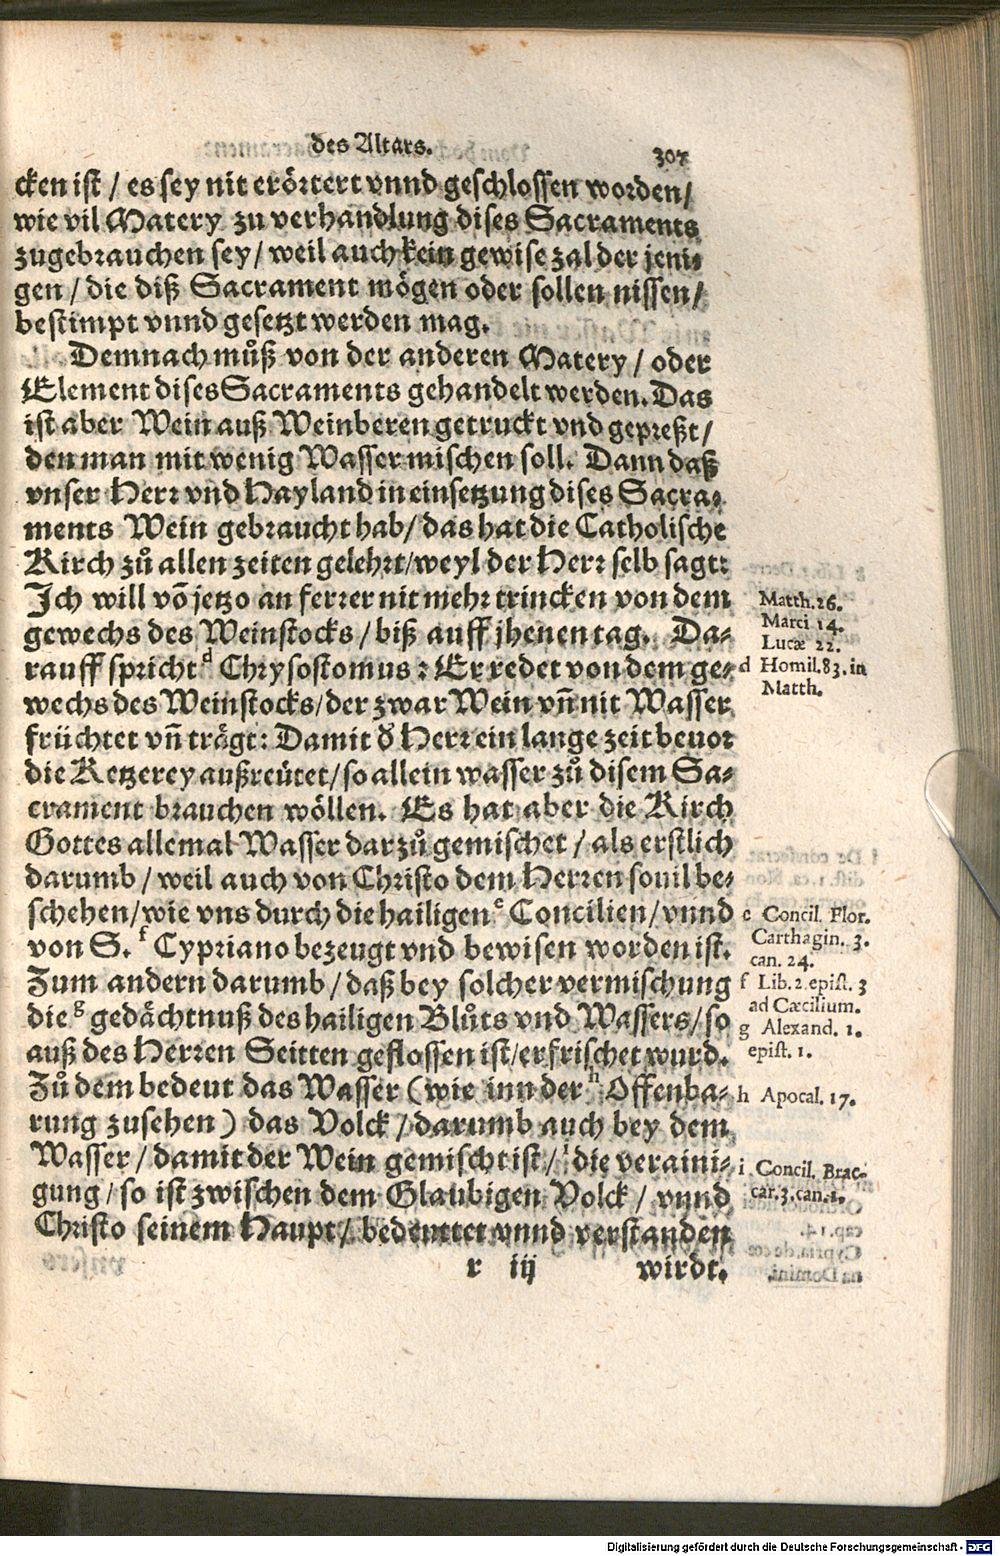 des Altars. 307
cken ist / es sey nit erörtert vnnd geschlossen worden /
wie vil Matery zu verhandlung dises Sacraments
zugebrauchen sey / weil auch kein gewise zal der jeni-
gen / die diß Sacrament mögen oder sollen niessen /
bestimpt vnnd gesetzt werden mag.
Demnach můß von der anderen Matery / oder
Element dises Sacraments gehandelt werden. Das
ist aber Wein auß Weinberen getruckt vnd gepreßt /
den man mit wenig Wasser mischen soll. Dann daß
vnser Herr vnd Hayland in einsetzung dises Sacra-
ments Wein gebraucht hab / das hat die Catholische
Kirch zů allen zeiten gelehrt / weyl der Herr selb sagt:
Ich will võ jetzo an ferrer nit mehr trincken von dem
gewechs des Weinstocks / biß auff jhenen tag. Da-
rauff spricht d Chrysostomus: Er redet von dem ge-
wechs des Weinstocks / der zwar Wein vñ nit Wasser
früchtet vñ trägt: Damit d' Herr ein lange zeit beuor
die Ketzerey außreütet / so allein wasser zů disem Sa-
crament brauchen wöllen. Es hat aber die Kirch
Gottes allemal Wasser darzů gemischet / als erstlich
darumb / weil auch von Christo dem Herren souil be-
schehen / wie vns durch die hailigen e Concilien / vnnd
von S. f Cypriano bezeugt vnd bewisen worden ist.
Zum andern darumb / daß bey solcher vermischung
die g gedächtnuß des hailigen Blůts vnd Wassers / so
auß des Herren Seitten geflossen ist / erfrischet wurd.
Zů dem bedeut das Wasser (wie inn der h Offenba-
rung zusehen) das Volck / darumb auch bey dem
Wasser / damit der Wein gemischt ist / i die veraini-
gung / so ist zwischen dem Glaubigen Volck / vnnd
Christo seinem Haupt / bedeuttet vnnd verstanden
r iij wirdt.
Matth. 26.
Marci 14.
Lucæ 22.
d Homil. 83. in
Matth.
e Concil. Flor.
Carthagin. 3.
can. 24.
f Lib. 2. epist. 3
ad Cæcilium.
g Alexand. 1.
epist. 1.
h Apocal. 17.
i Concil. Brac-
car. 3. can. 1.
Digitalisierung gefördert durch die Deutsche Forschungsgemeinschaft - DFG